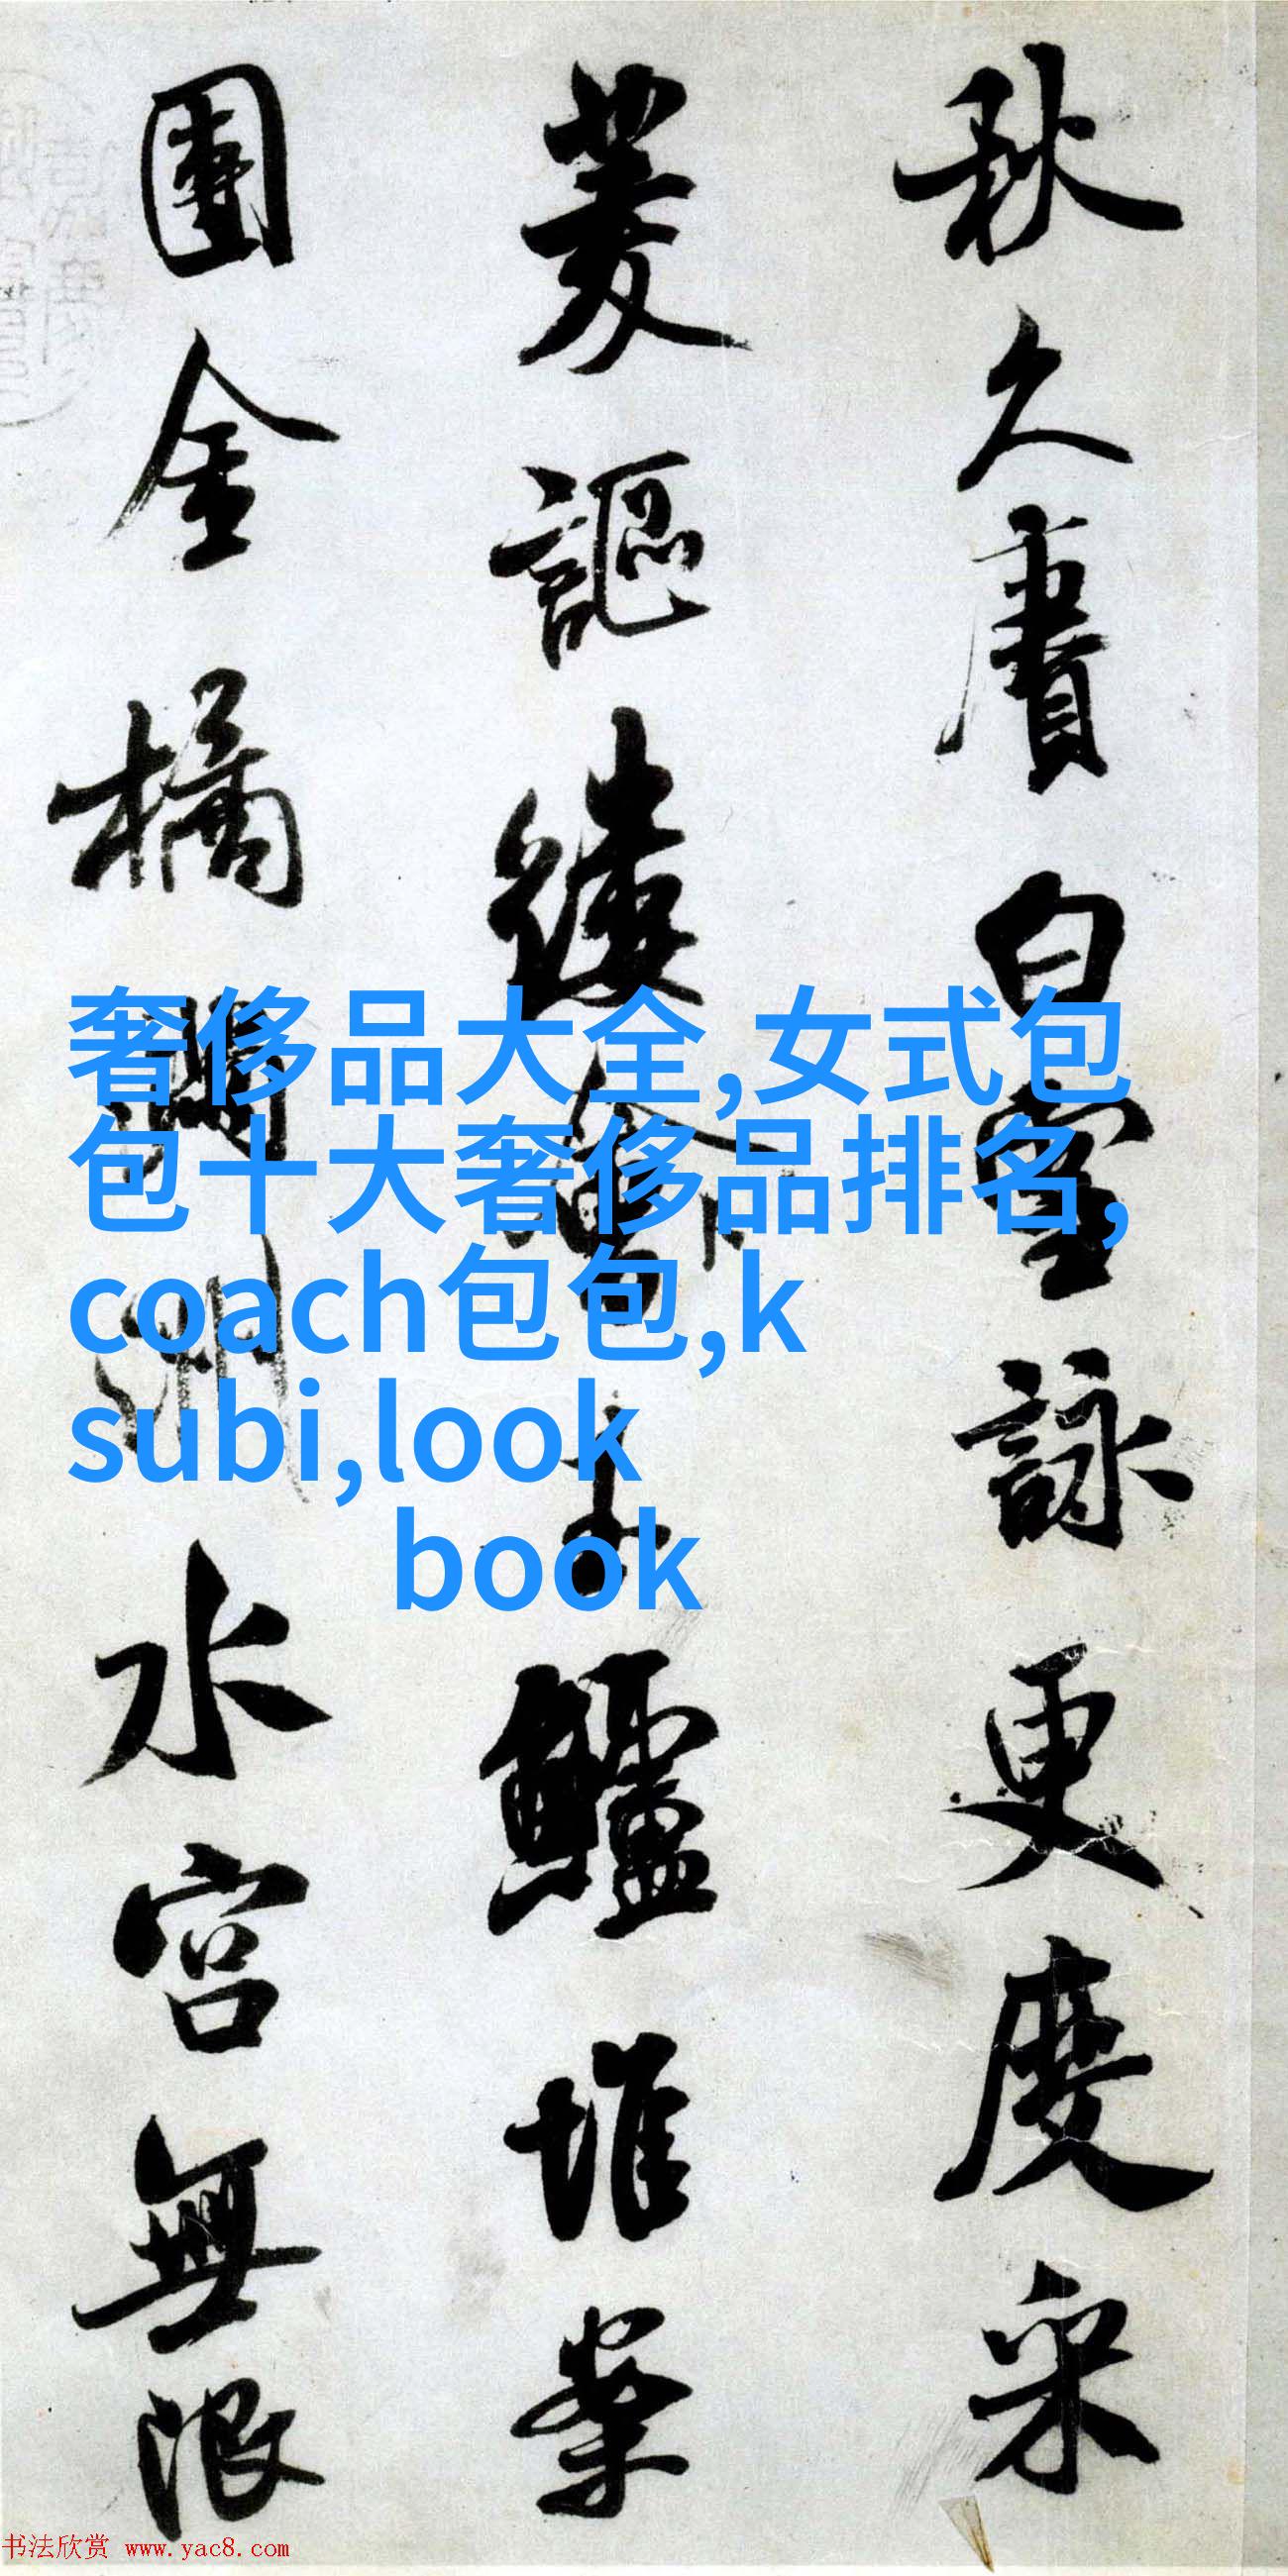 秋久賡白雪詠更度采
菱謳縷會玉鱸堆案
團金橘滿洲水宮無限
奢侈品大全,女式包
包十大奢侈品排名,
coach包包,k
subi,look
book
书法欣赏 www.yac8.com